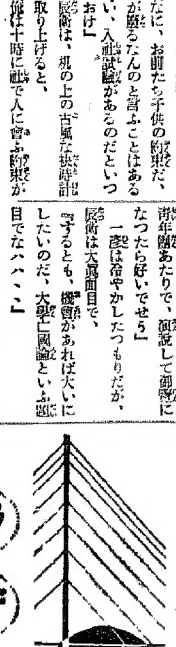 なに、お前たち子供の約束だ、
が鹽るなんのと言ふことはある
い、入社試驗があるのだといつ
おけ』
辰衛は、机の上の古風な快時計
取り上げると、
俺は十時に社で人に會ふ約束が
青年團あたりで、演説して御覽に
なつたら好いでせう』
一彦は冷やかしたつもりだが、
辰衛は大眞面目で、
『するとも、機會があれば大いに
したいのだ、大學亡國論といふ題
目でなハハヽヽ』